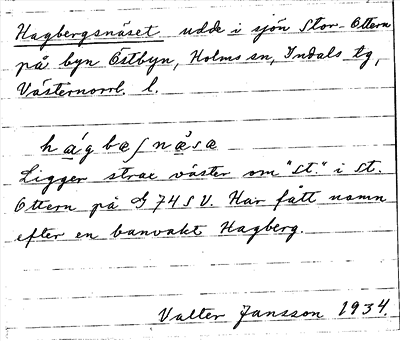 Hagbergsnäset udde i sjön Stor-Ottern
på byn Östbyn, Holms sn, Indals tg,
Västernorrl. l.
hágbæʃnæ̀sæ
Ligger strax väster om "St." i St.
Ottern på G 74 SV. Har fått namn
efter en banvakt Hagberg.
Valter Jansson 1934.